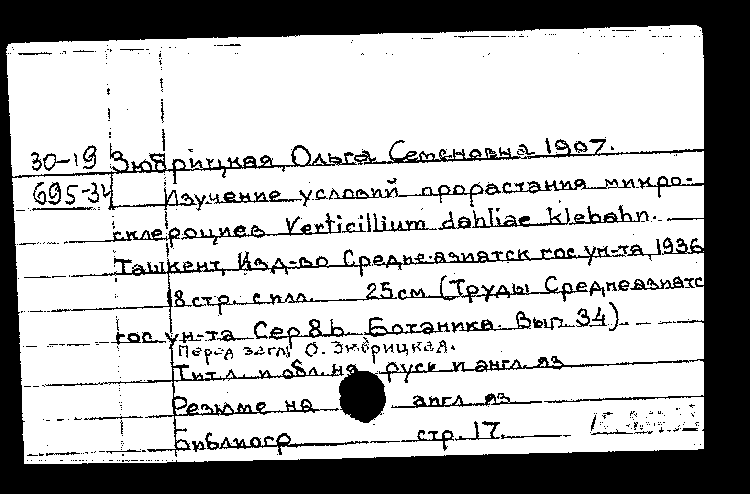 30-19 Зюбрицкая, Ольга Семеновна 1907.
695-34 Изучение условий прорастания микро-
склероциев Verticillium dahliae Klebahn.
Ташкент, Изд-во Среднеазиатск гос ун-та, 1936
18 стр. с илл. 25 см (Труды Среднеазиатс
гос ун-та Сер 8b. Ботаника. Вып. 34).
Перед загл. О. Зюбрицкая.
Тит. л. и обл. на русск и англ. яз
Резюме на англ яз
Библиогр стр. 17.